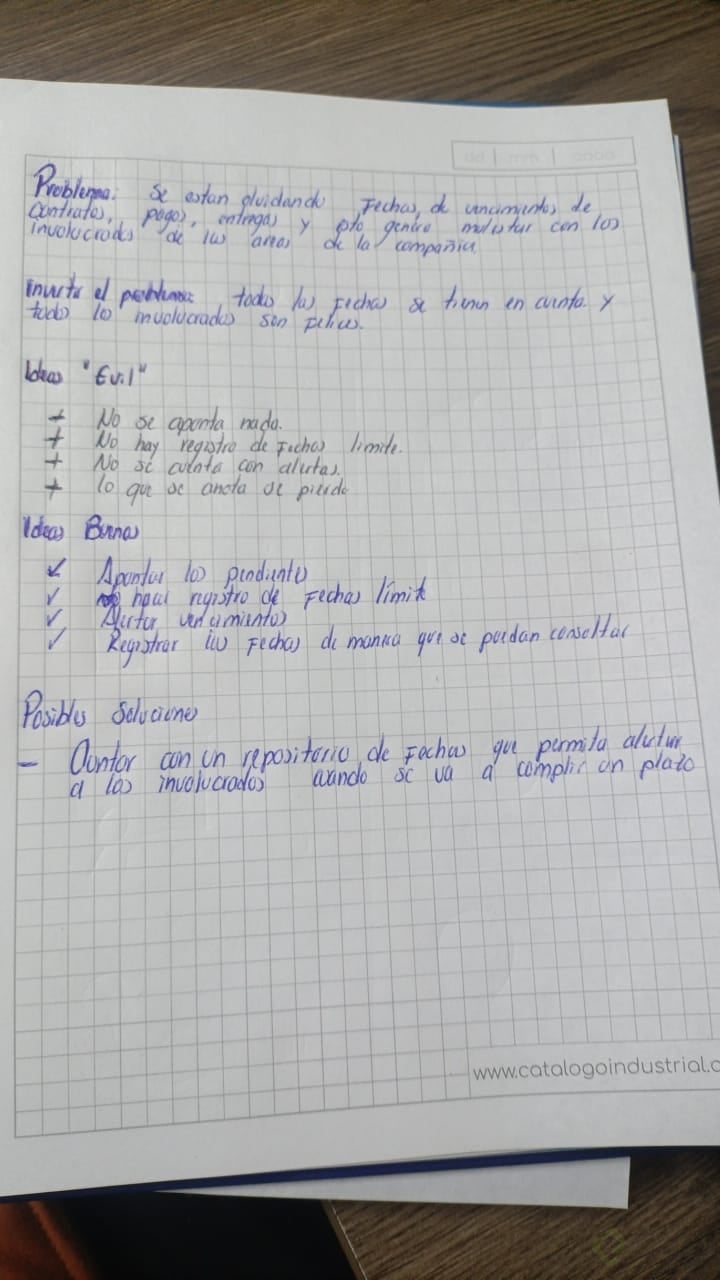 dd | mm | aaaa
Problema: Se estan olvidando Fechas, de vencimientos de
Contratos, pagos, entregas y esto genera malestar con los
involucrados de las areas de la compañia.
invertir el problema: todas las fechas se tienen en cuenta y
todos los involucrados son felices.
Ideas "Evil"
+ No se aponta nada.
+ No hay registro de Fechas limite.
+ No se cuenta con alertas.
+ lo que se anota se pierde
Ideas Buenas
✓ Apontar los pendientes
✓ hacer registro de Fechas límite
✓ Alertar vencimientos
✓ Registrar las Fechas de manera que se puedan consultar
Posibles Soluciones
- Contar con un repositorio de Fechas que permita alertar
a los involucrados cuando se va a complir un plazo
www.catalogoindustrial.c